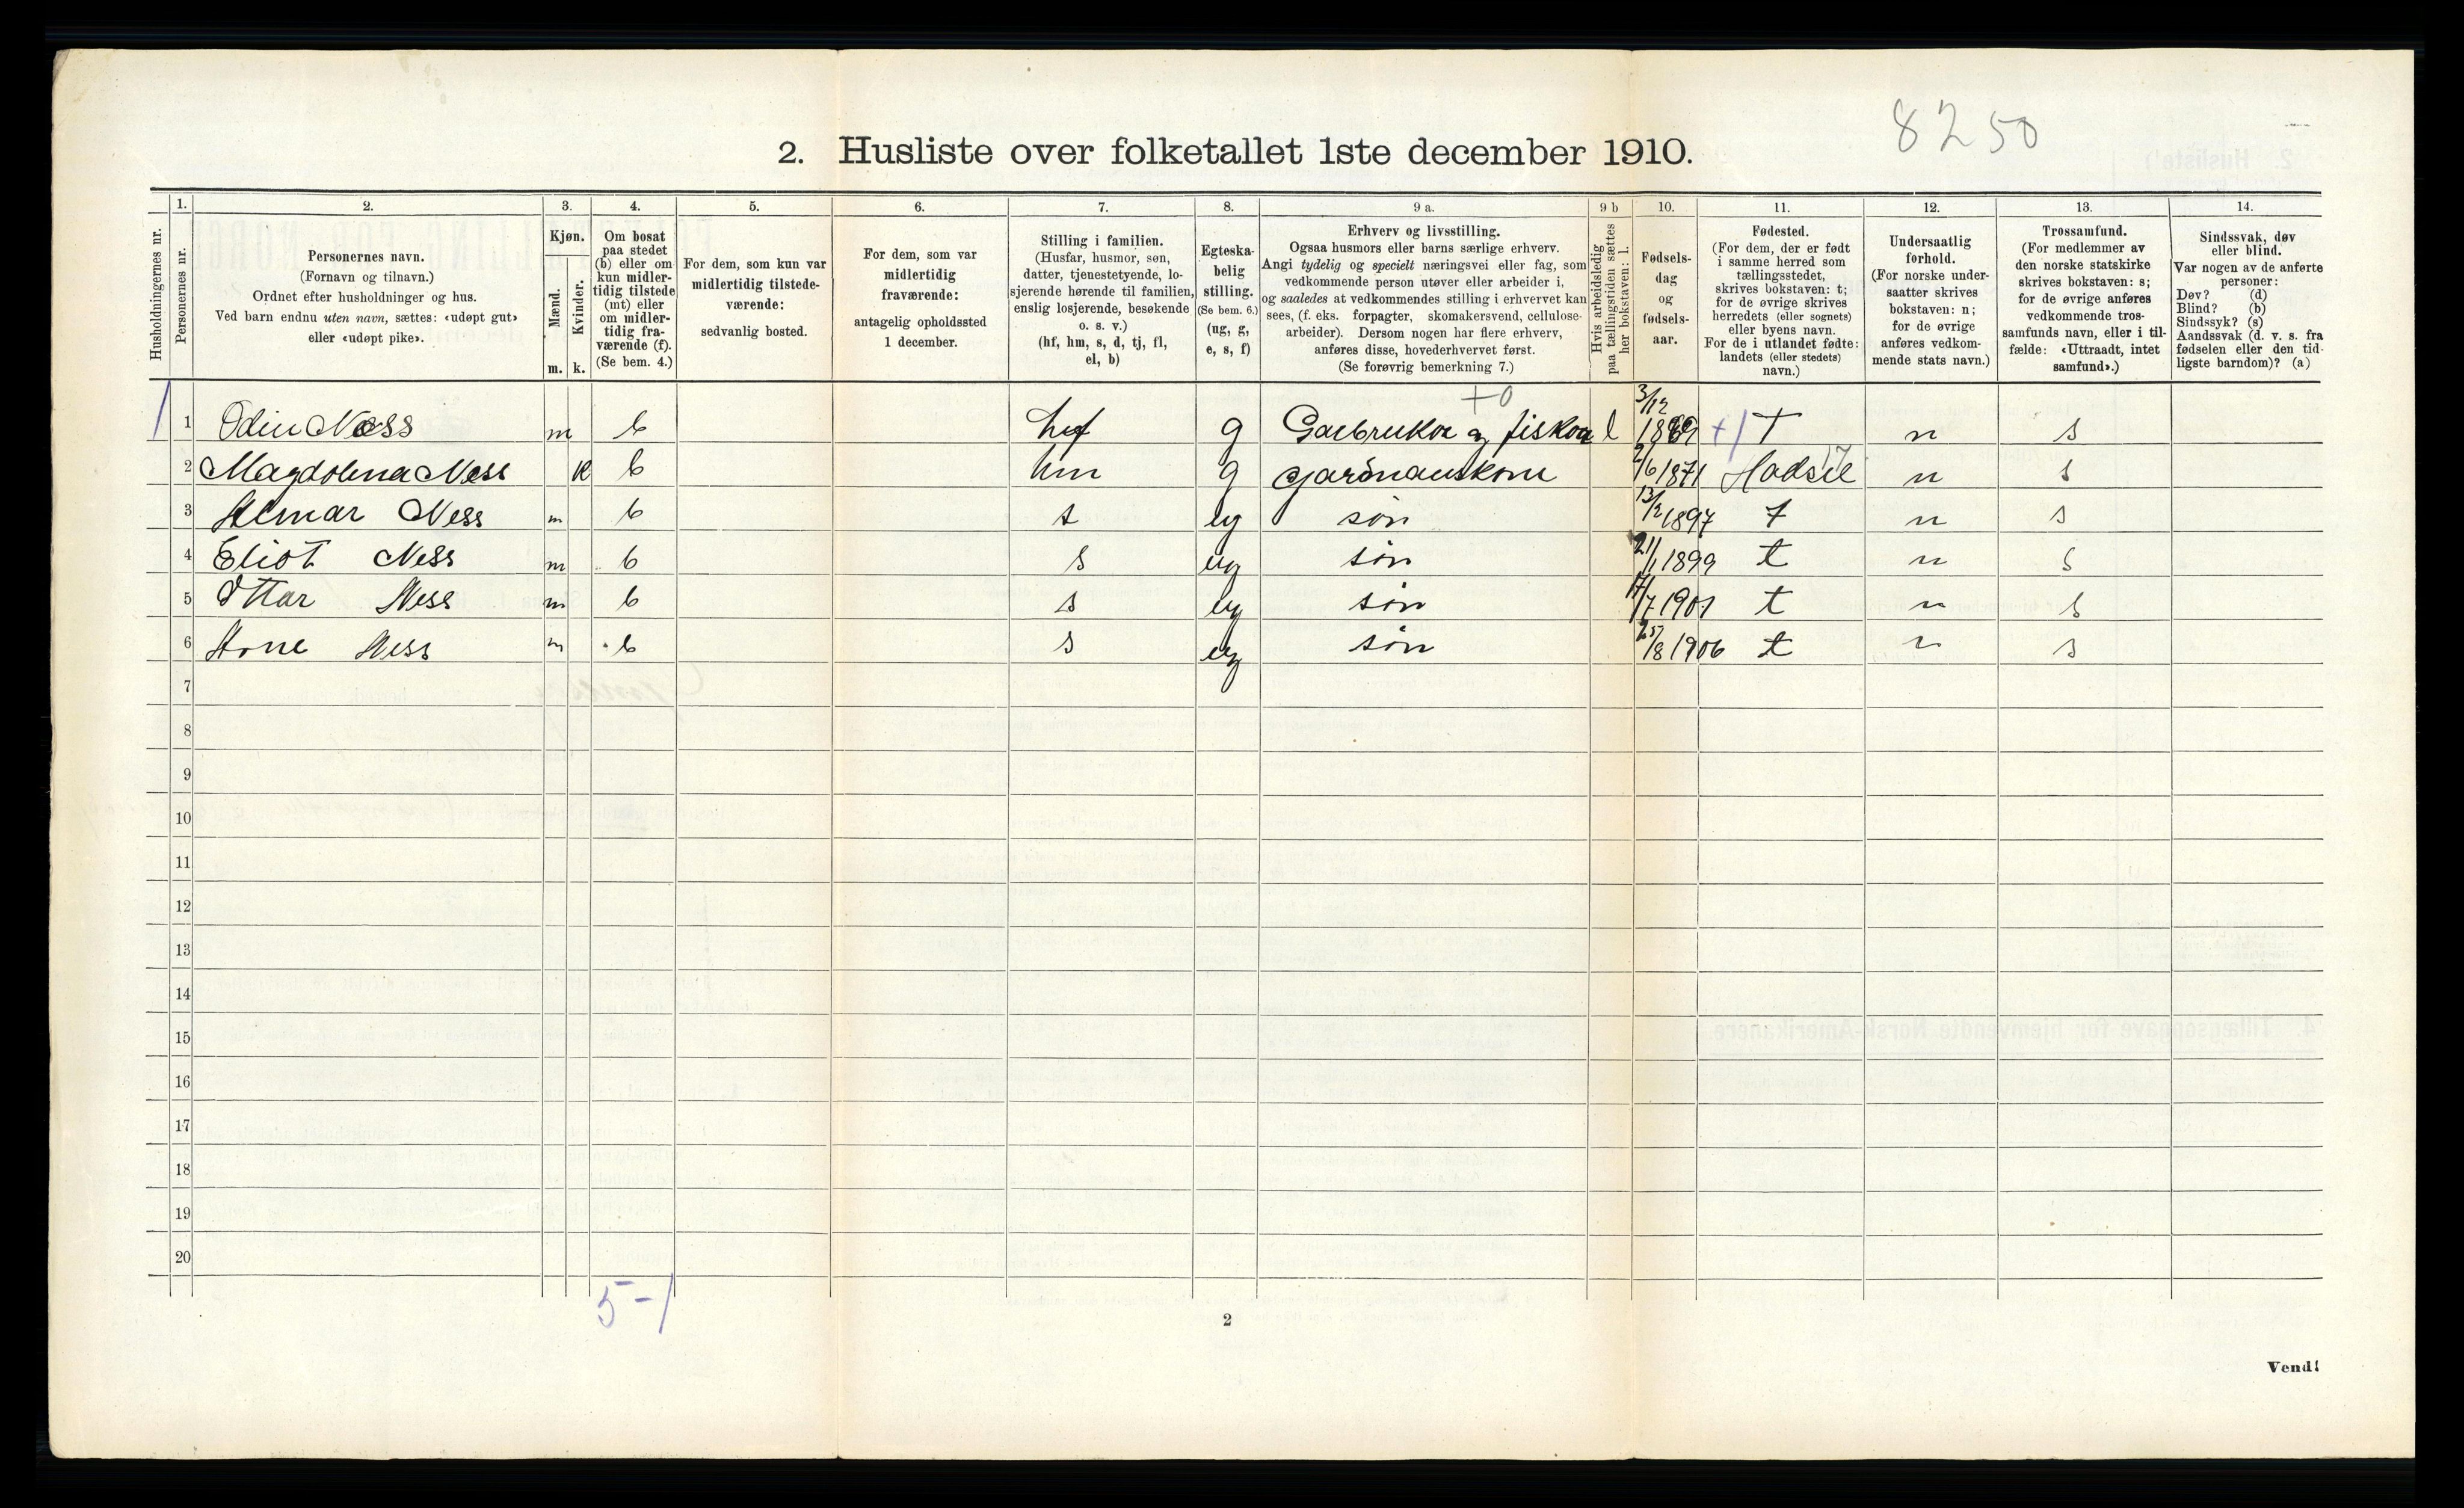 8250
2. Husliste over folketallet 1ste december 1910.
Husholdningernes nr.
1.
Personernes nr.
2.
Personernes navn.
(Fornavn og tilnavn.)
Ordnet efter husholdninger og hus.
Ved barn endnu uten navn, sættes: «udøpt gut»
eller «udøpt pike».
3.
Kjøn.
Mænd.
Kvinder.
m. k.
4.
Om bosat
paa stedet
(b) eller om
kun midler-
tidig tilstede
(mt) eller
om midler-
tidig fra-
værende (f).
(Se bem. 4.)
5.
For dem, som kun var
midlertidig tilstede-
værende:
sedvanlig bosted.
6.
For dem, som var
midlertidig
fraværende:
antagelig opholdssted
1 december.
7.
Stilling i familien.
(Husfar, husmor, søn,
datter, tjenestetyende, lo-
sjerende hørende til familien,
enslig losjerende, besøkende
o. s. v.)
(hf, hm, s, d, tj, fl,
el, b)
8.
Egteska-
belig
stilling.
(Se bem. 6.)
(ug, g,
e, s, f)
9 a.
Erhverv og livsstilling.
Ogsaa husmors eller barns særlige erhverv.
Angi tydelig og specielt næringsvei eller fag, som
vedkommende person utøver eller arbeider i,
og saaledes at vedkommendes stilling i erhvervet kan
sees, (f. eks. forpagter, skomakersvend, cellulose-
arbeider). Dersom nogen har flere erhverv,
anføres disse, hovederhvervet først.
(Se forøvrig bemerkning 7.)
9 b
Hvis arbeidsledig
paa tællingstiden sættes
her bokstaven: l.
10.
Fødsels-
dag
og
fødsels-
aar.
11.
Fødested.
(For dem, der er født
i samme herred som
tællingsstedet,
skrives bokstaven: t;
for de øvrige skrives
herredets (eller sognets)
eller byens navn.
For de i utlandet fødte:
landets (eller stedets)
navn.)
12.
Undersaatlig
forhold.
(For norske under-
saatter skrives
bokstaven: n;
for de øvrige
anføres vedkom-
mende stats navn.)
13.
Trossamfund.
(For medlemmer av
den norske statskirke
skrives bokstaven: s;
for de øvrige anføres
vedkommende tros-
samfunds navn, eller i til-
fælde: «Uttraadt, intet
samfund».)
14.
Sindssvak, døv
eller blind.
Var nogen av de anførte
personer:
Døv? (d)
Blind? (b)
Sindssyk? (s)
Aandssvak (d. v. s. fra
fødselen eller den tid-
ligste barndom)? (a)
+0
1 1 Odin Ness m b huf g Gaebruker og fisker l 3/12 1869 +1 T n s
17
2 Magdolena Ness K b hm g gardmanskone 2/6 1871 Hadsel n s
3 Almar Ness m b s ug søn 13/2 1897 t n s
4 Eliot Ness m b s ug søn 21/1 1899 t n s
5 Ottar Ness m b s ug søn 17/7 1901 t n s
6 Arne Ness m b s ug søn 25/8 1906 t n s
7
8
9
10
11
12
13
14
15
16
17
18
19
20
5-1
2
Vend!